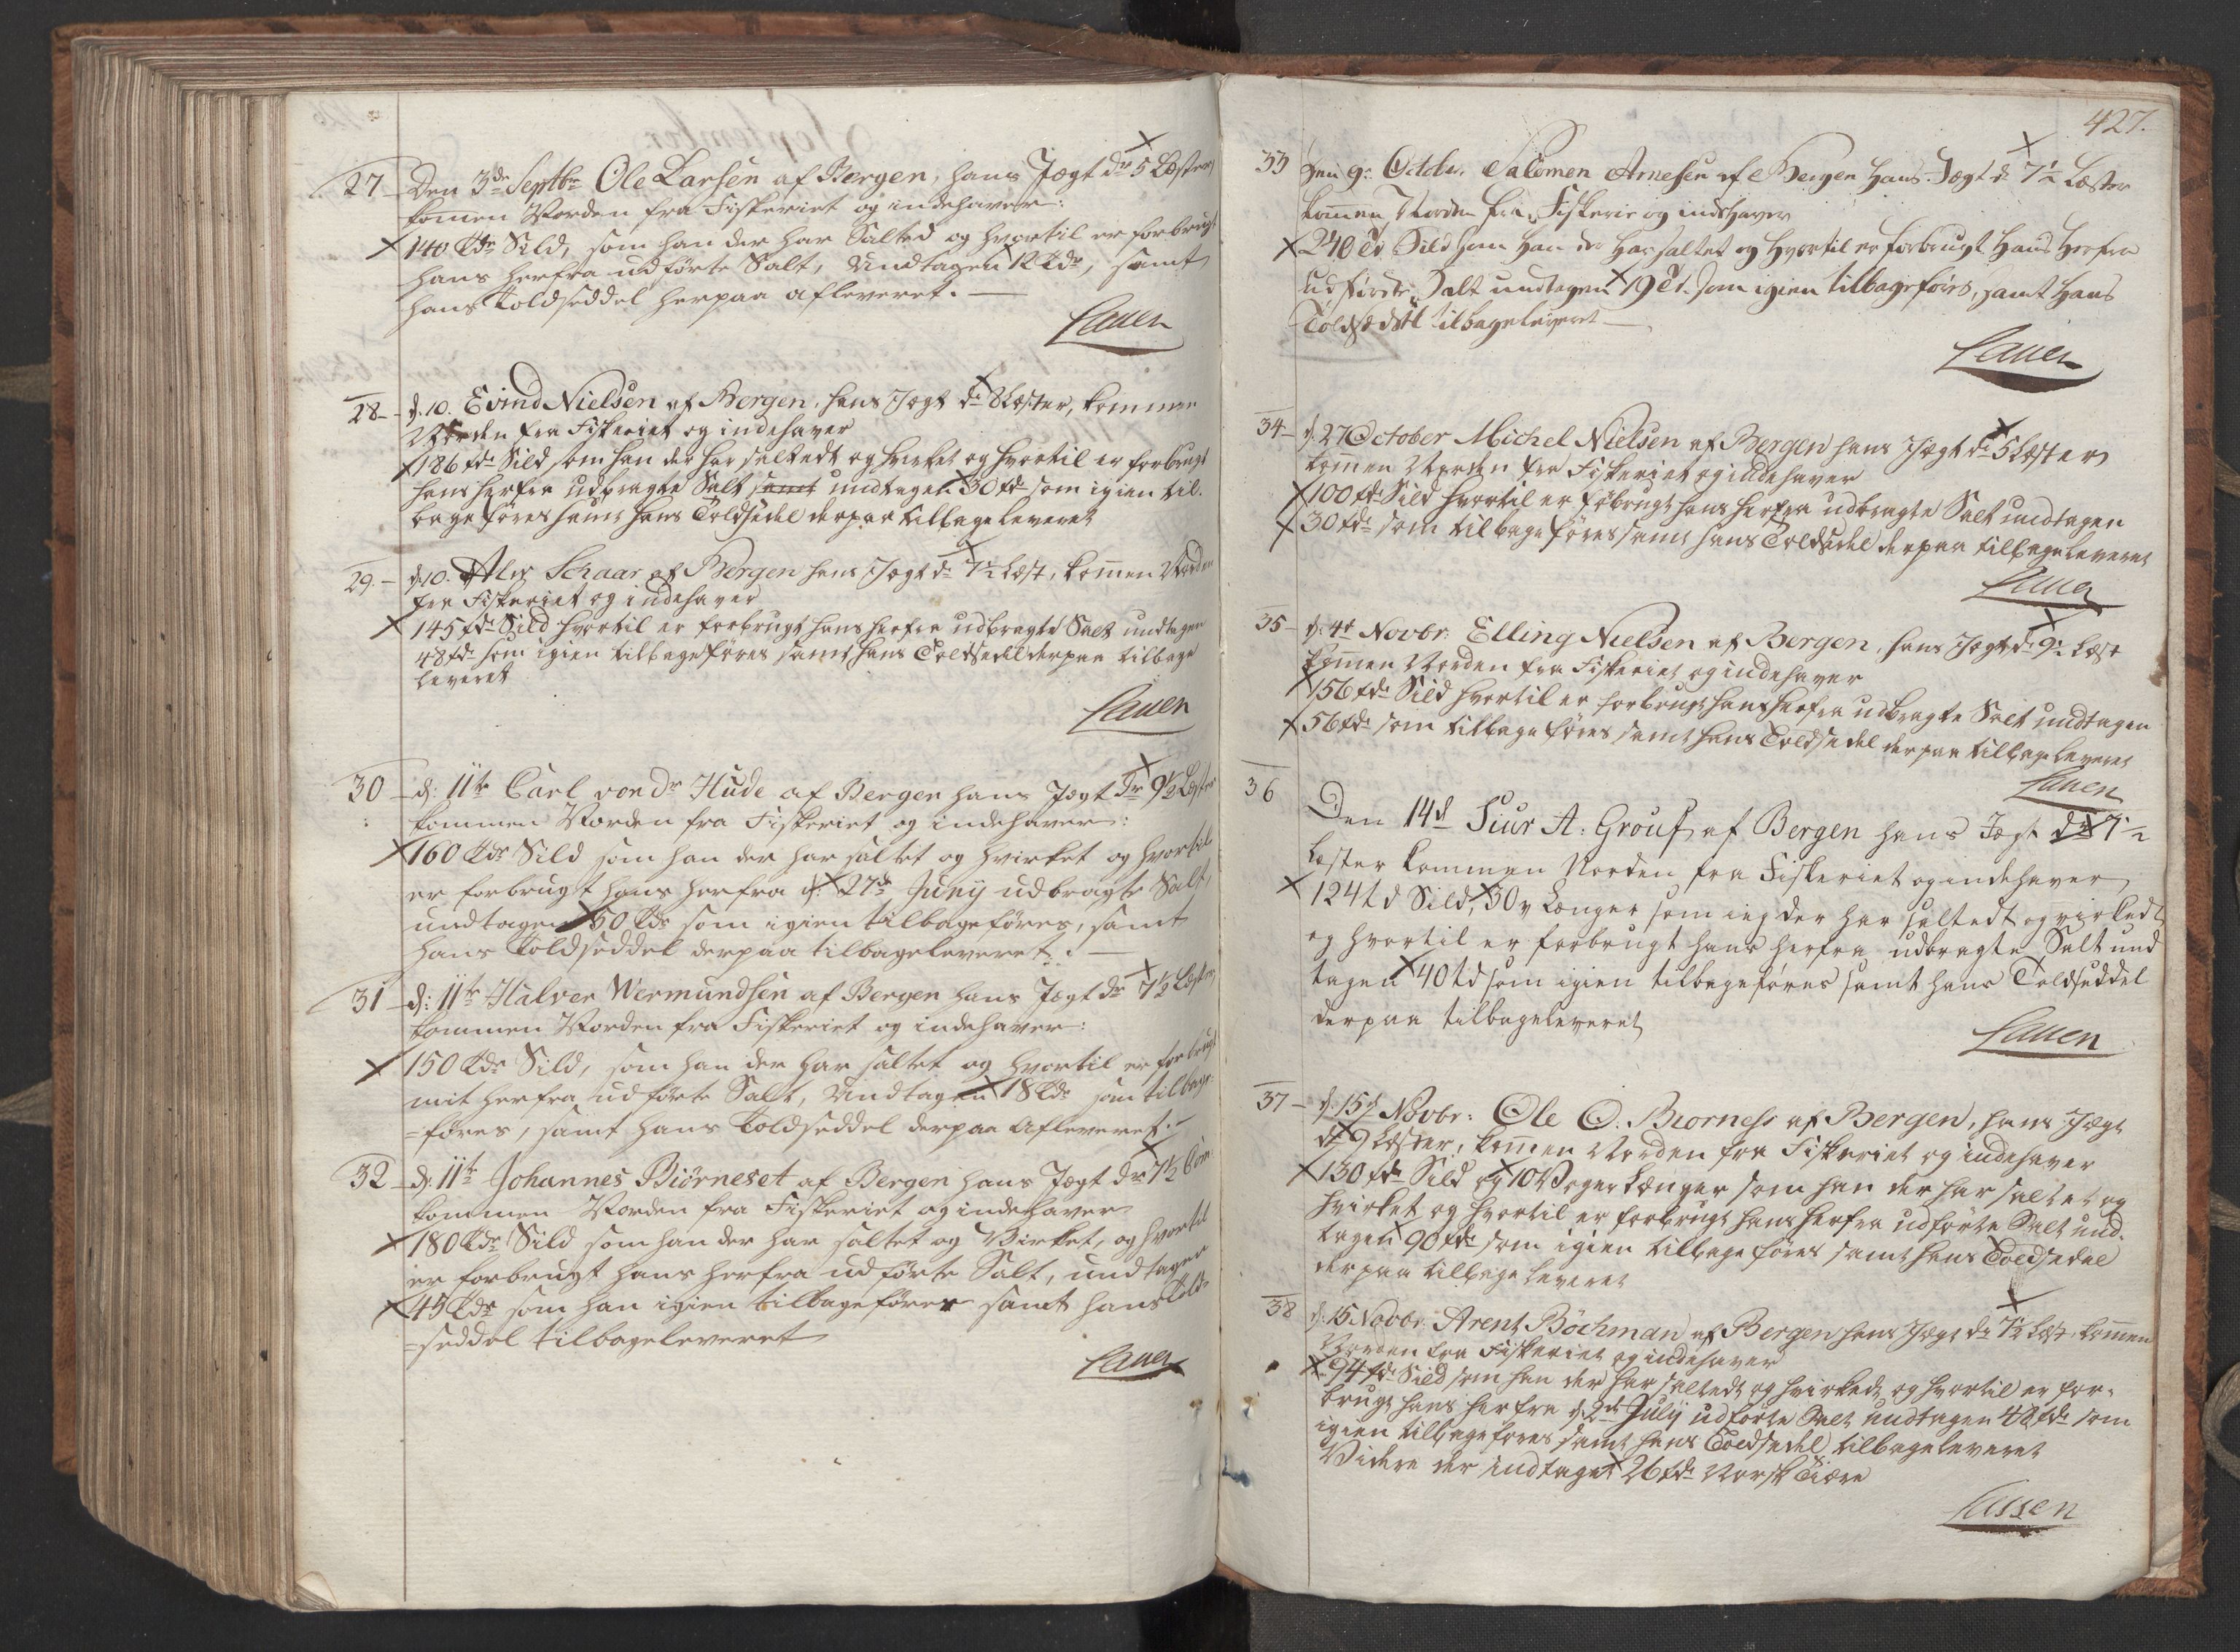 27 Den 3de Septbr Ole Larsen af Bergen, hans Jægt dr 5 Læster
kommen Norden fra Fiskeriet og indehaver:
140 Tdr Sild, som han der har Salted og hvortil er forbrugt
hans herfra udførte Salt, Undtagen 12 Tdr, samt
hans Toldseddel herpaa afleveret.
Lauen
28 d. 10. Evind Nielsen af Bergen, hans Jægt dr 8 Læster, kommen
Norden fra Fiskeriet og indehaver
186 tdr Sild som han der har saltedt og hvirket og hvortil er forbrugt
hans herfra udbragte Salt samt undtagen 30 td som igien til-
bage føres samt hans Toldsedel derpaa tilbage leveret
29. d. 10. Schaar af Bergen hans Jægt dr 7½ Læst, kommen Norden
fra Fiskeriet og indehaver
145 tdr Sild hvortil er forbrugt hans herfra udbragte Salt undtagen
48 tdr som igien tilbageføres samt hans Toldsedel derpaa tilbage
leveret
Lauen
30 d: 11te Carl von dr Hude af Bergen hans Jægt dr 9½ Læster
kommen Norden fra Fiskeriet og indehaver:
160 Tdr Sild som han der har saltet og hvirket og hvortil
er forbrugt hans herfra d. 27de Junÿ udbragte Salt,
undtagen 50 Tdr som igien tilbageføres, samt
hans Toldseddel derpaa tilbageleveret.
31 d: 11te Halver Wermundsen af Bergen hans Jægt dr 7½ Læster,
kommen Norden fra Fiskeriet og indehaver:
150 Tdr Sild, som han der har saltet og hvortil er forbrugt
mit herfra udførte Salt, Undtagen 18 Tdr som tilbage-
=føres, samt hans Toldseddel derpaa Afleveret.
32 d: 11te Johannes Biørneset af Bergen hans Jægt dr 7½
kommen Norden fra Fiskeriet og indehaver
180 Tdr Sild som han der har saltet og Virket, og hvortil
er forbrugt hans herfra udførte Salt, undtagen
45 Tdr som han igien tilbageføres samt hans Told-
=seddel tilbageleveret
Lauen
427.
33 Den 9: Octbr. Salomon Arnesen af Bergen Hans Jægt dr 7½ Læster
kommen Norden fra Fiskerie og indehaver
240 Td Sild som Han der Har saltet og Hvortil er forbrugt Hans Herfra
udførte Salt undtagen 19 Td. som igien tilbageføres, samt Hans
Toldseddel tilbageleveret
Lauen
34 d. 27 October Michel Nielsen af Bergen hans Jægt dr 5 Læster
kommen Norden fra Fiskeriet og indehaver
100 tdr Sild hvortil er forbrugt hans herfra udbragte Salt undtagen
30 tdr som tilbage føres samt hans Toldsedel derpaa tilbageleveret
Lauen
35 d: 4de Novbr: Elling Nielsen af Bergen, hans Jægt dr 9½ Læst
kommen Norden fra Fiskeriet og indehaver
156 tdr Sild hvortil er forbrugt hans herfra udbragte Salt undtagen
56 tdr som tilbage føres samt hans Toldsedel derpaa tilbage leveret
Lauen
36 Den 14d Siur A: Grouf af Bergen hans Jægt dr 7½
Læster kommen Norden fra Fiskeriet og indehaver
124 td Sild, 30 v Længer som ieg der har saltedt og virkedt
og hvortil er forbrugt hans herfra udbragte Salt und
tagen 40 td som igien tilbageføres samt hans Toldseddel
derpaa tilbageleveret
Lauen
37 d. 15d Novbr: Ole O. Biorness af Bergen, hans Jægt
dr 9 Læster, kommen Norden fra Fiskeriet og indehaver
130 tdr Sild og 10 Voger Længer som han der har saltet og
hvirket og hvortil er forbrugt hans herfra udførte Salt und-
tagen 90 tdr som igien tilbage føres samt hans Toldsedel
derpaa tilbage leveret
38 d. 15 Novbr. Arent Böchman af Bergen hans Jægt dr 7½ Læst, kommen
Norden fra Fiskeriet og indehaver
94 tdr Sild som han der har saltedt og hvirkedt og hvortil er for-
brugt hans herfra d. 2de Julÿ udførte Salt undtagen 48 tdr som
igien tilbageføres samt hans Toldsedel tilbageleveret
Videre der indtaget 26 tdr Norsk Tiære
Lassen